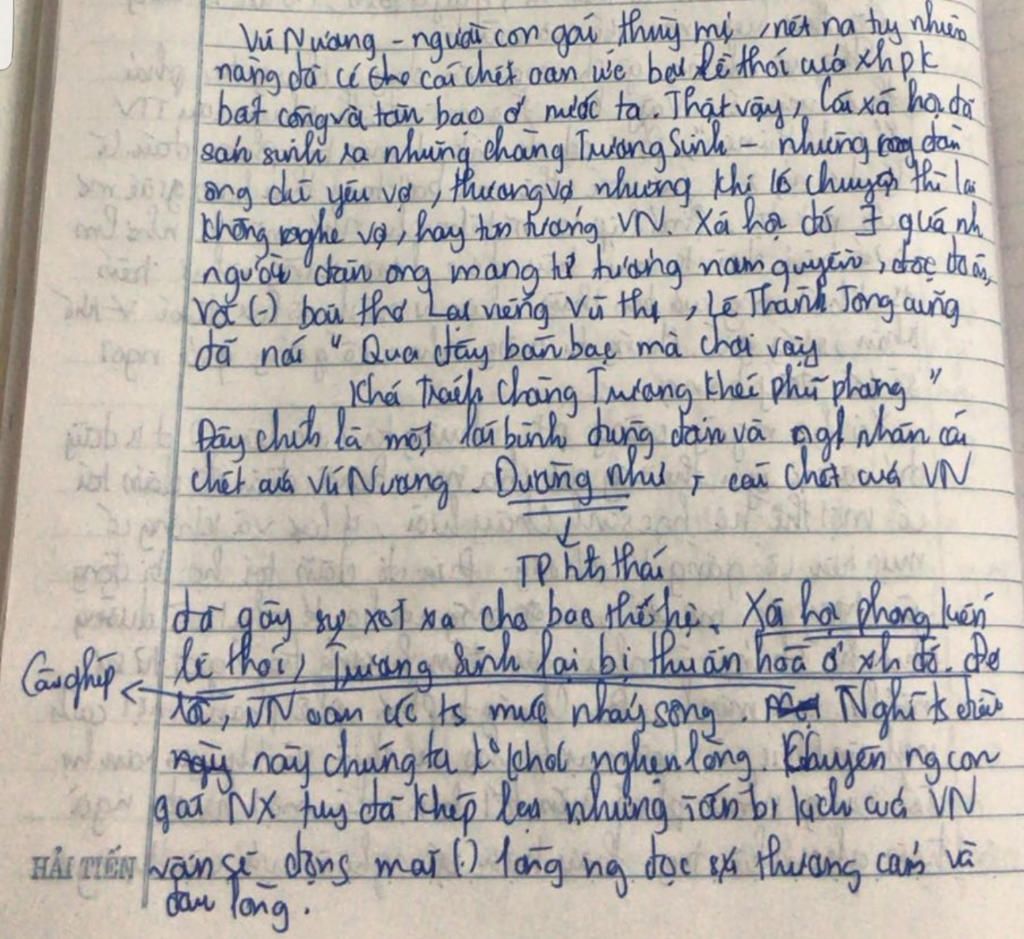 Vũ Nương - người con gái thuỳ mị, nết na tuy nhiên
nàng đã có thể cái chết oan ức bởi lề thói của xhpk
bất công và tàn bạo ở nước ta. Thật vậy, Cái xã hội đã
sản sinh ra những chàng Trương Sinh - những đàn
ông chỉ yêu vợ, thương vợ nhưng khi có chuyện thì lại
không nghe vợ, hay tin tưởng VN. Xã hội đó quá nh
người đàn ông mang tư tưởng nam quyền, độc đoán,
Và (-) bài thơ Lại viếng Vũ thị, Lê Thánh Tông cũng
đã nói "Qua đây bàn bạc mà chơi vậy
Khá trách chàng Trương khéo phũ phàng"
Đây chính là một lời bình đúng đắn và ng' nhân cái
chết của Vũ Nương. Dường như, cái chết của VN
TP tình thái
đã gây sự xót xa cho bao thế hệ. Xã hội phong kiến
Câu ghép
lề thói, Trương Sinh lại bị thuần hoá ở xh đó. Để
rồi, VN oan ức ts mức nhảy sông. Nghĩ ts điều
này chúng ta k° khỏi nghẹn lòng. Chuyện ng con
gái NX tuy đã khép lại nhưng tấn bi kịch của VN
HẢI TIẾN
vẫn sẽ đọng mãi (.) lòng ng đọc sự thương cảm và
đau lòng.